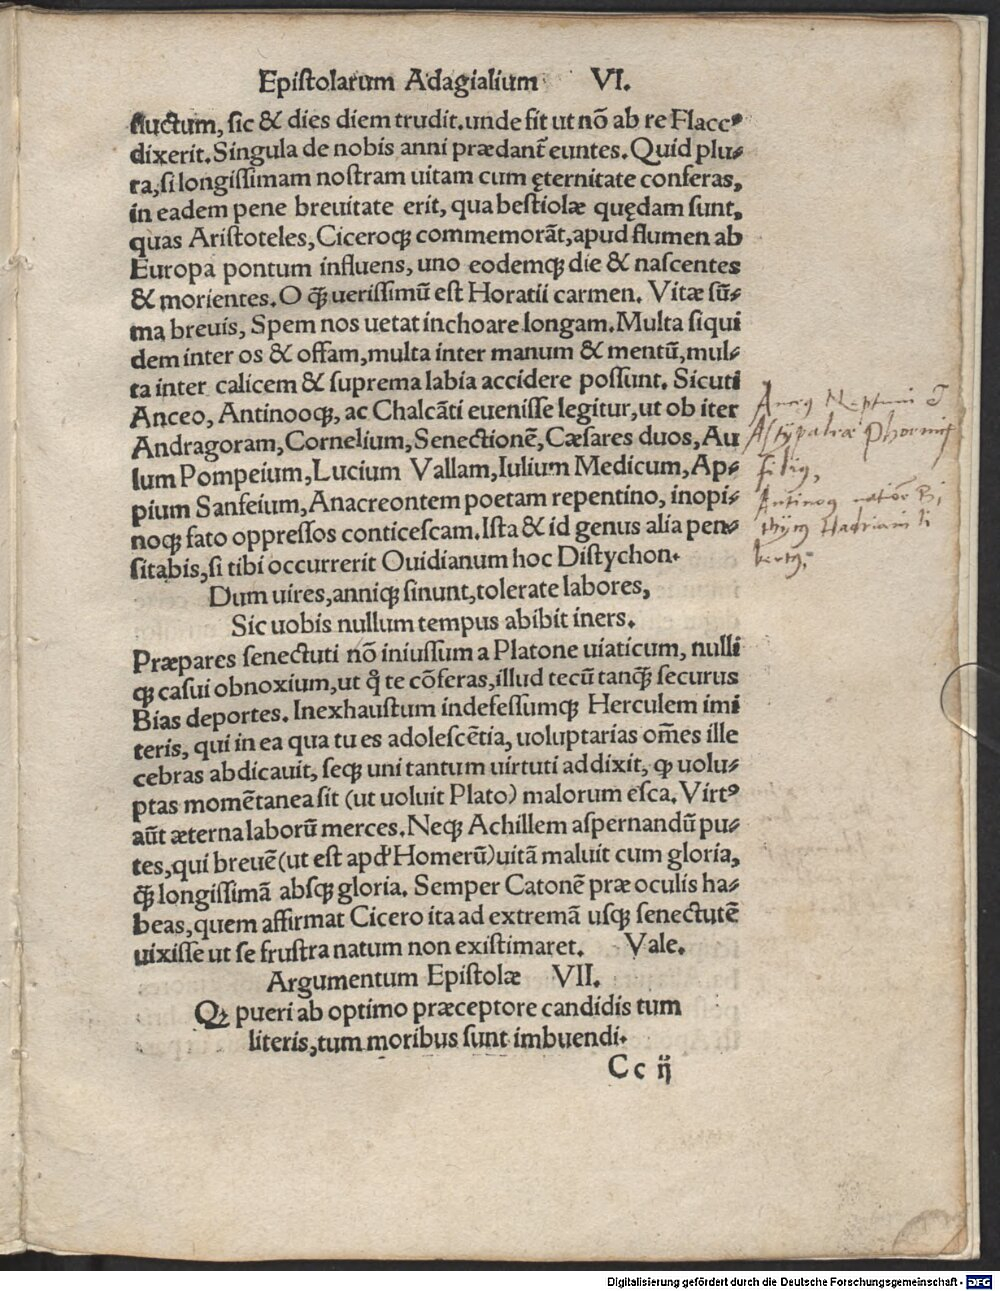 Epiſtolarum Adagialium VI.
fluctum, ſic & dies diem trudit. unde fit ut nõ ab re Flacc⁹
dixerit. Singula de nobis anni prædant̃ euntes. Quid plu⸗
ra, ſi longiſſimam noſtram uitam cum ęternitate conferas,
in eadem pene breuitate erit, qua beſtiolæ quędam ſunt,
quas Ariſtoteles, Ciceroq́ꝫ commemorãt, apud flumen ab
Europa pontum influens, uno eodemqꝫ die & naſcentes
& morientes. O q̃ꝫ ueriſſimũ eſt Horatii carmen. Vitæ ſũ⸗
ma breuis, Spem nos uetat inchoare longam. Multa ſiqui
dem inter os & offam, multa inter manum & mentũ, mul⸗
ta inter calicem & ſuprema labia accidere poſſunt. Sicuti
Anceo, Antinooqꝫ, ac Chalcãti eueniſſe legitur, ut ob iter
Andragoram, Cornelium, Senectionẽ, Cæſares duos, Au
lum Pompeium, Lucium Vallam, Iulium Medicum, Ap⸗
pium Sanfeium, Anacreontem poetam repentino, inopi⸗
noqꝫ fato oppreſſos conticeſcam. Iſta & id genus alia pen⸗
ſitabis, ſi tibi occurrerit Ouidianum hoc Diſtychon.
Dum uires, anniqꝫ ſinunt, tolerate labores,
Sic uobis nullum tempus abibit iners.
Præpares ſenectuti nõ iniuſſum a Platone uiaticum, nulli
qꝫ caſui obnoxium, ut q̊ te cõferas, illud tecũ tanq̃ꝫ ſecurus
Bias deportes. Inexhauſtum indefeſſumqꝫ Herculem imi
teris, qui in ea qua tu es adoleſcẽtia, uoluptarias om̃es ille
cebras abdicauit, ſeqꝫ uni tantum uirtuti addixit, ꝙ uolu⸗
ptas momẽtanea ſit (ut uoluit Plato) malorum eſca. Virt⁹
aũt æterna laborũ merces. Neqꝫ Achillem aſpernandũ pu⸗
tes, qui breuẽ (ut eſt apd' Homerũ) uitã maluit cum gloria,
q̃ꝫ longiſſimã abſqꝫ gloria. Semper Catonẽ præ oculis ha⸗
beas, quem affirmat Cicero ita ad extremã uſqꝫ ſenectutẽ
uixiſſe ut ſe fruſtra natum non exiſtimaret. Vale.
Argumentum Epiſtolæ VII.
Qꝫ pueri ab optimo præceptore candidis tum
literis, tum moribus ſunt imbuendi.
Cc ij
Neptuni
Aſtypaleæ
filiꝰ,
Antinoꝰ natiõe Bi
thynꝰ Hadriani li
bertꝰ.
Digitalisierung gefördert durch die Deutsche Forschungsgemeinschaft - DFG